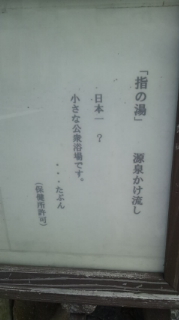 「指の湯」　源泉かけ流し
日本一　？
小さな公衆浴場です。
・・・たぶん
（保健所許可）